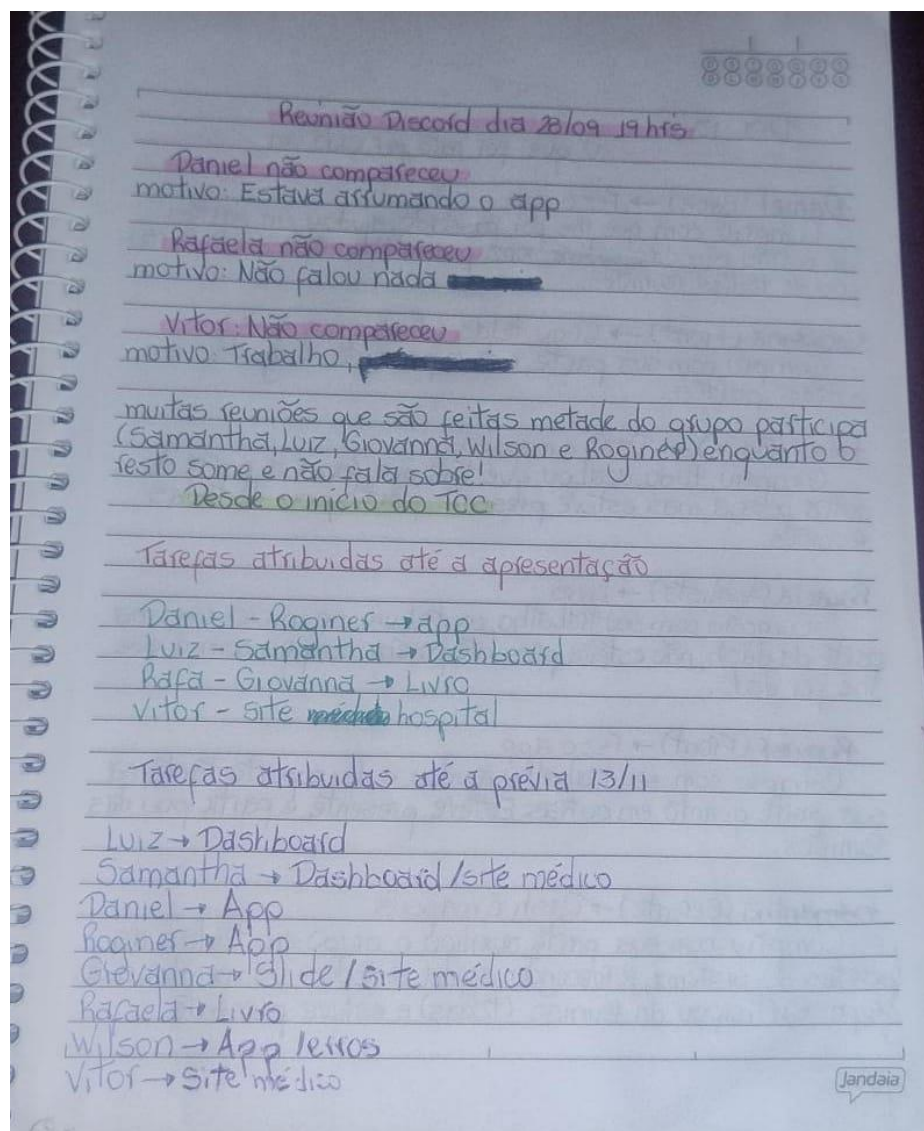 Reunião Discord dia 28/09 19 hrs
Daniel não compareceu
motivo: Estava arrumando o app
Rafaela não compareceu
motivo: Não falou nada
Vitor: Não compareceu
motivo: Trabalho,
muitas reuniões que são feitas metade do grupo participa
(Samantha, Luiz, Giovanna, Wilson e Roginer) enquanto o
resto some e não fala sobre!
Desde o início do TCC
Tarefas atribuidas até a apresentação
Daniel - Roginer → app
Luiz - Samantha → Dashboard
Rafa - Giovanna → Livro
Vitor - site hospital
Tarefas atribuidas até a prévia 13/11
Luiz → Dashboard
Samantha → Dashboard / site médico
Daniel → App
Roginer → App
Giovanna → Slide / site médico
Rafaela → Livro
Wilson → App / erros
Vitor → Site médico
Jandaia